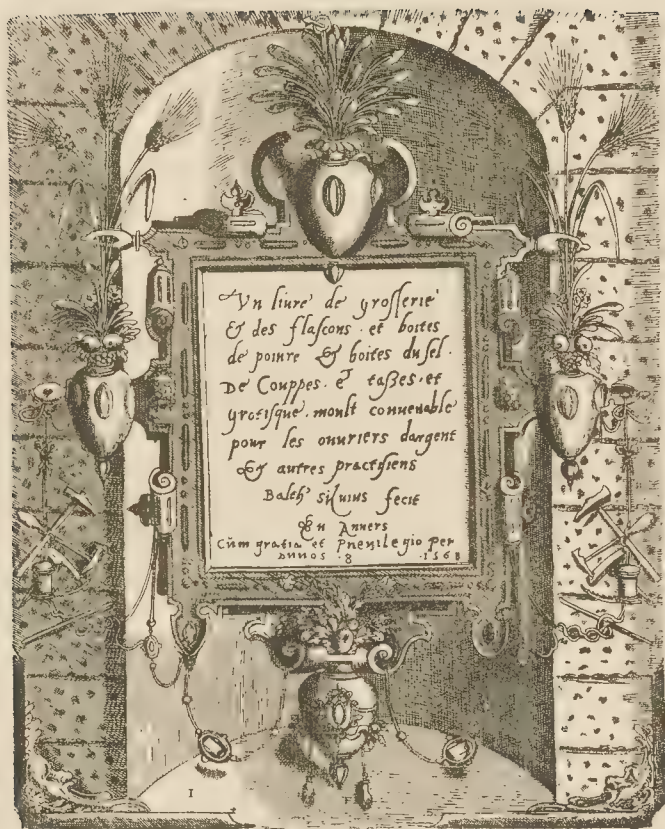 Vn liure de grosserie
& des flascons. et boites
de poiure & boites du sel.
De Couppes. et taßes. et
grotisque. moult conuenable
pour les ouuriers dargent
& autres practisiens
Balth siluius fecit
En Anuers
Cum gratia et Preuilegio Per
annos. 8 .1568
I